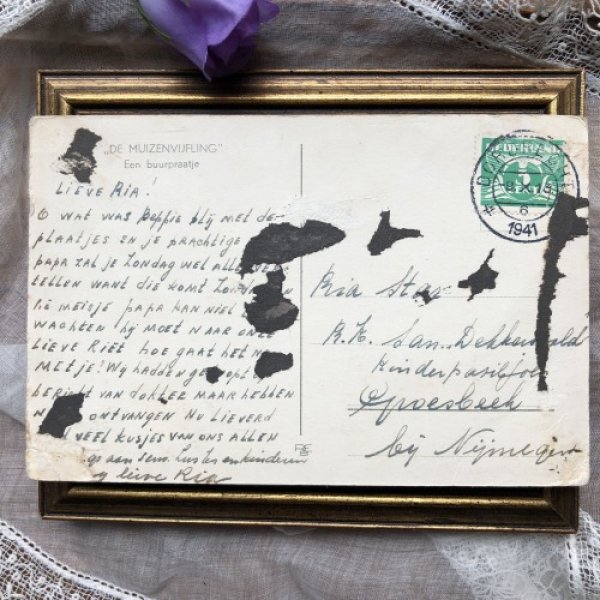 "DE MUIZENVIJFLING"
Een buurpraatje
LIEVE RIA!
O WAT WAS PEPPIE BLIJ MET DE
PLAATJES EN JE PRACHTIGE
PAPA ZAL JE ZONDAG WEL ALLES
TELLEN WANT DIE KOMT
MEISJE PAPA KAN NIET
WACHTEN HIJ MOET NAAR ONZE
LIEVE RIET HOE GAAT HET
METJE! WIJ HADDEN GEHOOPT
BERICHT VAN DOKTER MAAR HEBBEN
ONTVANGEN NU LIEVERD
VEEL KUSJES VAN ONS ALLEN
aan kinderen
lieve Ria
NEDERLAND
5
1941
Ria
R.K. San. Dekkerswald
Kinderpaviljoen
Groesbeek
bij Nijmegen